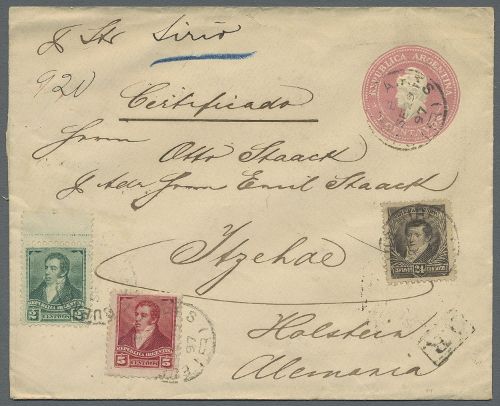 p Str Sirio
920
REPUBLICA ARGENTINA
Certificado
Herrn
Otto Staack
p Adr. Herrn Emil Staack
Itzehoe
Holstein
Alemania
24
CENTAVOS
2 2
CENTAVOS
REPUBLICA ARGENTINA
5 5
CENTAVOS
97
97
R